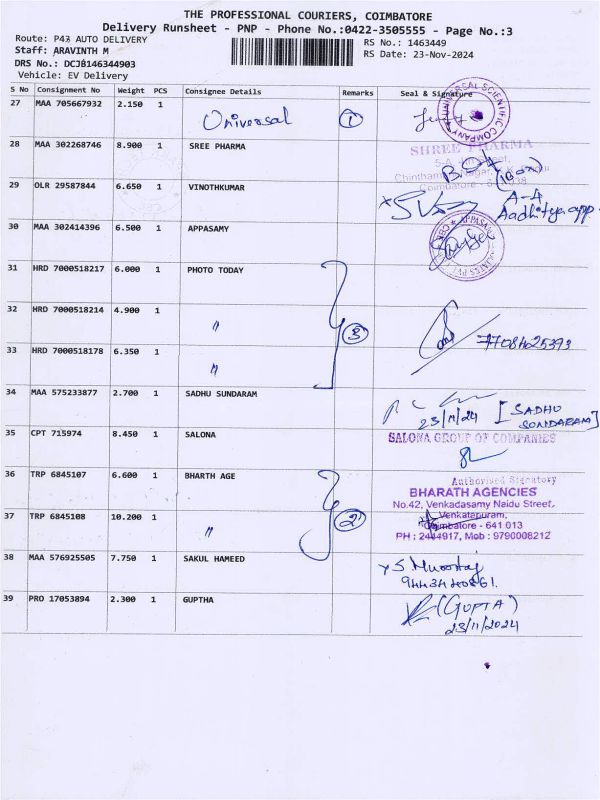 THE PROFESSIONAL COURIERS, COIMBATORE
Delivery Runsheet - PNP - Phone No.:0422-3505555 - Page No.:3
Route: P43 AUTO DELIVERY
RS No.: 1463449
Staff: ARAVINTH M
RS Date: 23-Nov-2024
DRS No.: DCJB146344903
Vehicle: EV Delivery
S No Consignment No Weight PCS Consignee Details Remarks Seal & Signature
27 MAA 705667932 2.150 1 Universal 1
UNIVERSAL SCIENTIFIC COMPANY
28 MAA 302268746 8.900 1 SREE PHARMA
SHREE PHARMA
29 OLR 29587844 6.650 1 VINOTHKUMAR
A-A
Aadhitya app.
30 MAA 302414396 6.500 1 APPASAMY
31 HRD 7000518217 6.000 1 PHOTO TODAY
32 HRD 7000518214 4.900 1 〃
3 77084025393
33 HRD 7000518178 6.350 1 〃
34 MAA 575233877 2.700 1 SADHU SUNDARAM
23/11/24 [SADHU SUNDARAM]
35 CPT 715974 8.450 1 SALONA
SALONA GROUP OF COMPANIES
Authorised Signatory
36 TRP 6845107 6.600 1 BHARTH AGE
BHARATH AGENCIES
No.42, Venkadasamy Naidu Street,
Venkatapuram,
Coimbatore - 641 013
PH : 2444917, Mob : 9790008212
37 TRP 6845108 10.200 1 〃 2
38 MAA 576925505 7.750 1 SAKUL HAMEED
39 PRO 17053894 2.300 1 GUPTHA
(GUPTA)
23/11/2024